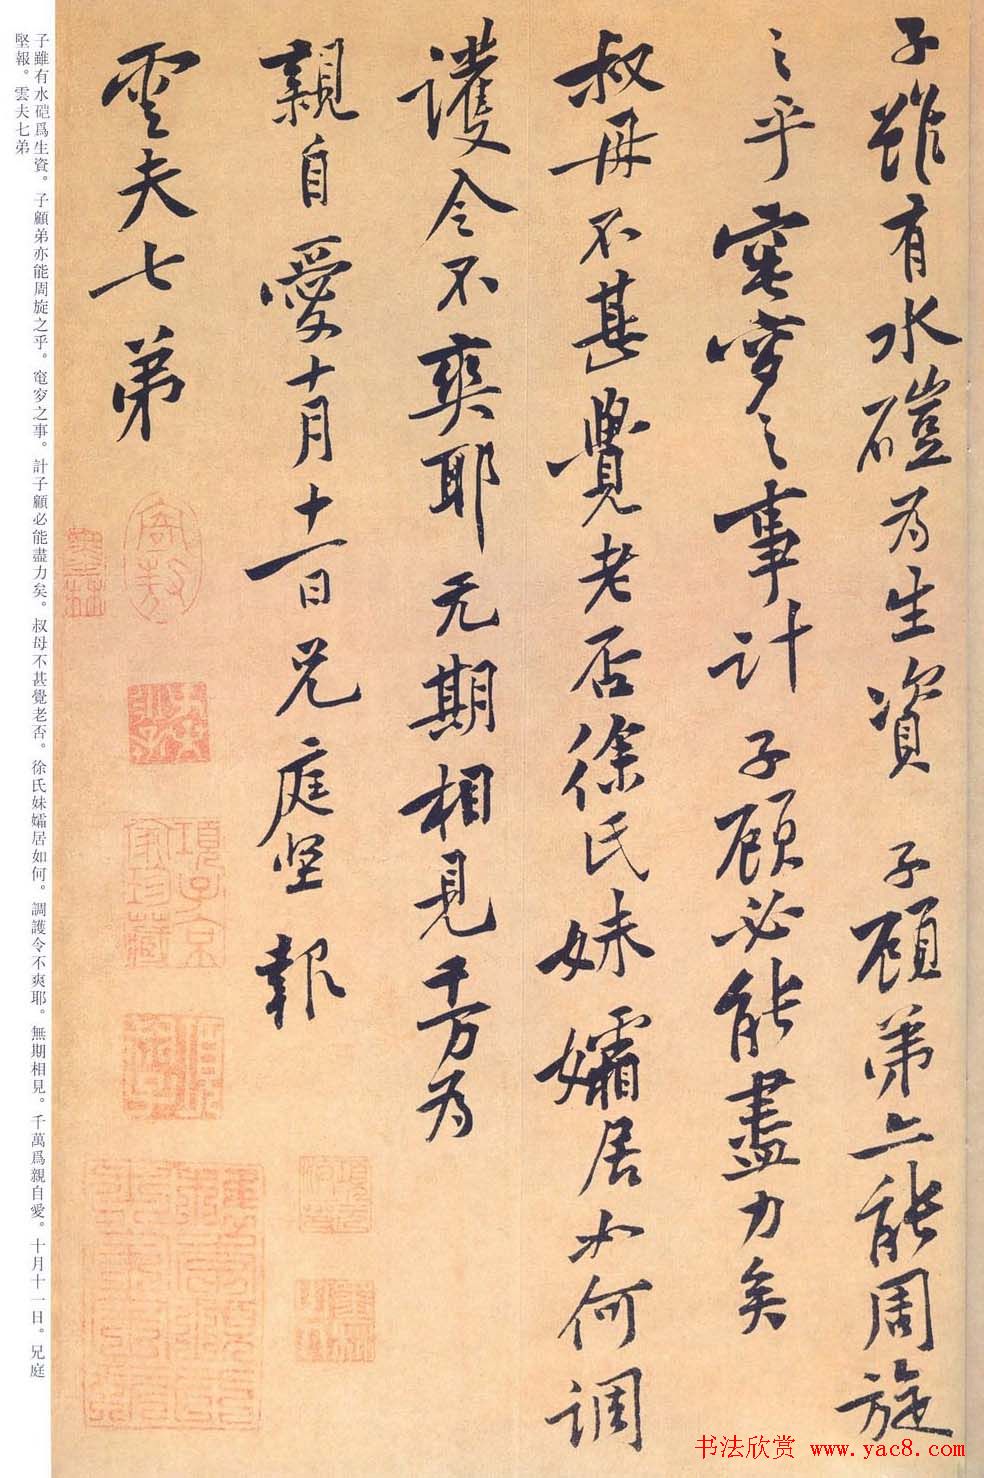 子雖有水磑为生資 子顧弟亦能周旋
之乎窀穸之事計 子顧必能盡力矣
叔母不甚覺老否徐氏妹孀居如何調
護令不爽耶 无期相見千万为
親自愛十月十一日兄 庭坚 報
雲夫七弟
項子京
家珍藏
子雖有水磑爲生資。子顧弟亦能周旋之乎。窀穸之事。計子顧必能盡力矣。叔母不甚覺老否。徐氏妹孀居如何。調護令不爽耶。無期相見。千萬爲親自愛。十月十一日。兄庭
堅報。雲夫七弟
书法欣赏 www.yac8.com